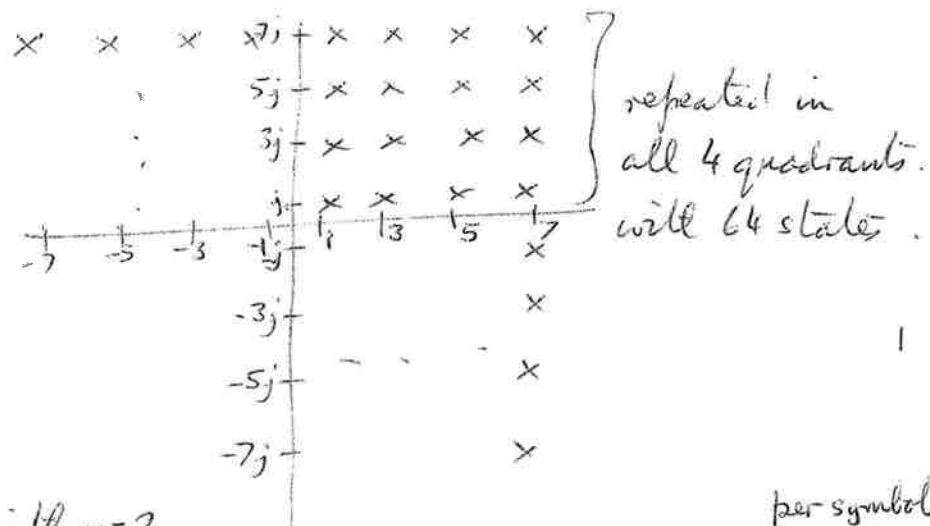 7j
5j
3j
j
-7 -5 -3 -1 1 3 5 7
-j
-3j
-5j
-7j
repeated in
all 4 quadrants.
with 64 states.
per symbol